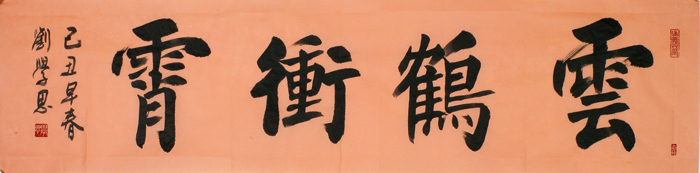 雲鶴衝霄
己丑早春
劉學思